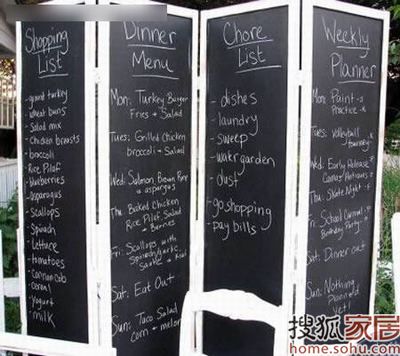 Shopping
List
- ground turkey
- wheat buns
- Salad mix
- Chicken breasts
- broccoli
- Rice Pilaf
- blueberries
- asparagus
- scallops
- Spinach
- Lettuce
- tomatoes
- cereal
- yogurt
- milk
Dinner
Menu
Mon: Turkey Burger
Fries + Salad
Tues: Grilled Chicken
broccoli + Salad
Wed: Salmon Brown Rice
+ asparagus
Thu: Baked Chicken
Rice Pilaf Salad
+ Berries
Fri: Scallops with
Spinach, garlic
Sat: Eat Out
Sun: Taco Salad
corn + melon
Chore
List
- dishes
- laundry
- sweep
- water garden
- dust
- go shopping
- pay bills
Weekly
Planner
Mon: Paint
Practice
Tues: Volleyball
Wed: Early Release
Thu: Skate Night
Fri: School Carnival
Birthday Party
Sat: Dinner out
Sun: Nothing
Planned
yet!
搜狐家居
home.sohu.com